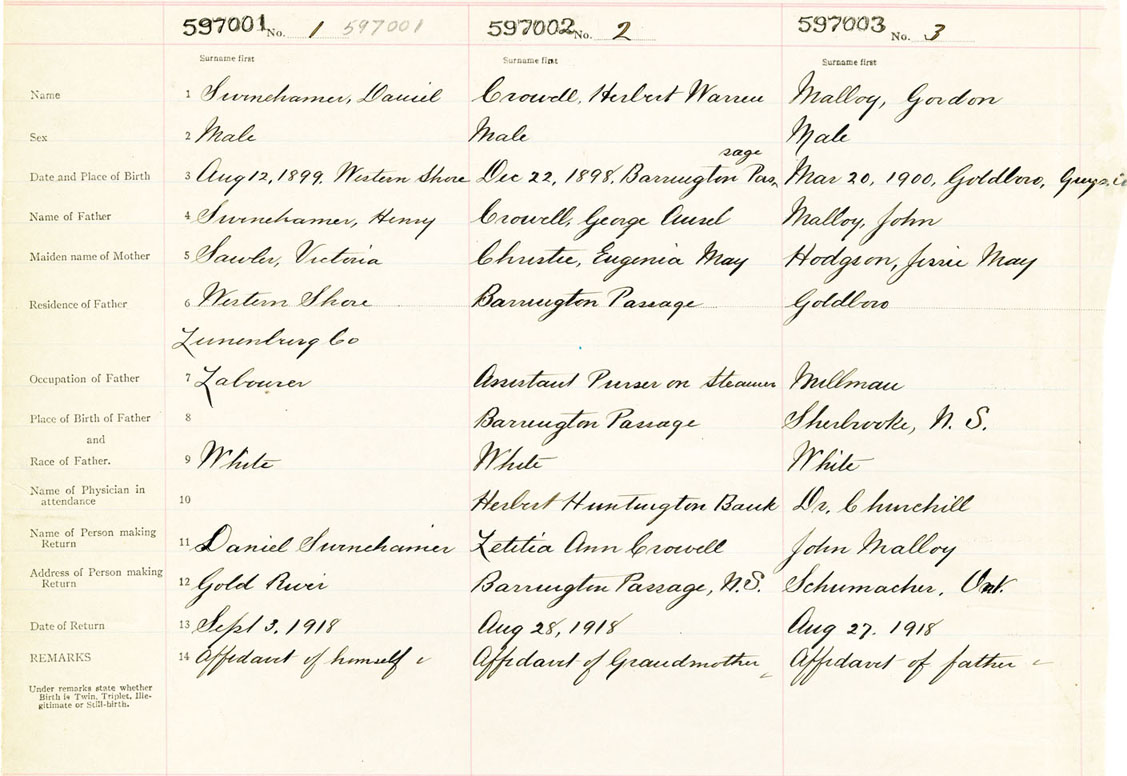 597001 No. 1 597001 597002 No. 2 597003 No. 3
Surname first Surname first Surname first
Name 1 Swinehamer, Daniel Crowell, Herbert Warren Malloy, Gordon
Sex 2 Male Male Male
sage
Date and Place of Birth 3 Aug 12, 1899. Western Shore Dec 22, 1898, Barrington Pas Mar 20, 1900, Goldboro,
Name of Father 4 Swinehamer, Henry Crowell, George Ansel Malloy, John
Maiden name of Mother 5 Sawler, Victoria Christie, Eugenia May Hodgson, Jessie May
Residence of Father 6 Western Shore Barrington Passage Goldboro
Lunenburg Co
Occupation of Father 7 Labourer Assistant Purser on Steamer Millman
Place of Birth of Father 8 Barrington Passage Sherbrooke, N. S.
and
Race of Father. 9 White White White
Name of Physician in
attendance 10 Herbert Huntington Dr. Churchill
Name of Person making
Return 11 Daniel Swinehamer Letitia Ann Crowell John Malloy
Address of Person making
Return 12 Gold River Barrington Passage, N.S. Schumacher, Ont.
Date of Return 13 Sept 3, 1918 Aug 28, 1918 Aug 27. 1918
REMARKS 14 Affidavit of himself Affidavit of Grandmother Affidavit of father
Under remarks state whether
Birth is Twin, Triplet, Ille-
gitimate or Still-birth.